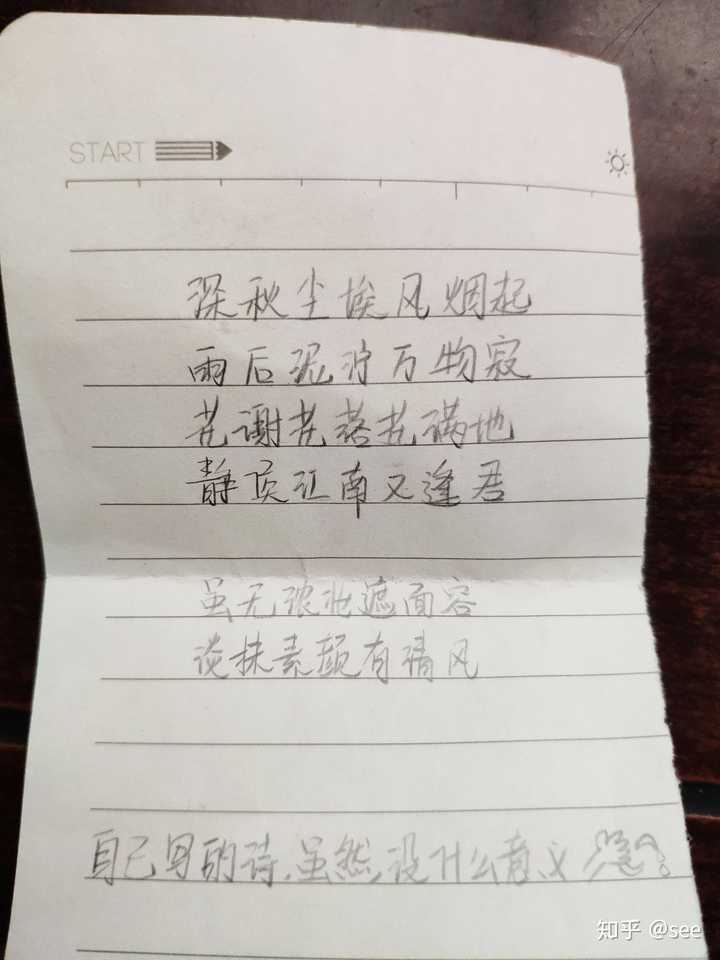 START
深秋尘埃风烟起
雨后泥泞万物寂
花谢花落花满地
静候江南又逢君
虽无浓妆遮面容
淡抹素颜有清风
自己写的诗,虽然,没什么意义
知乎 @see